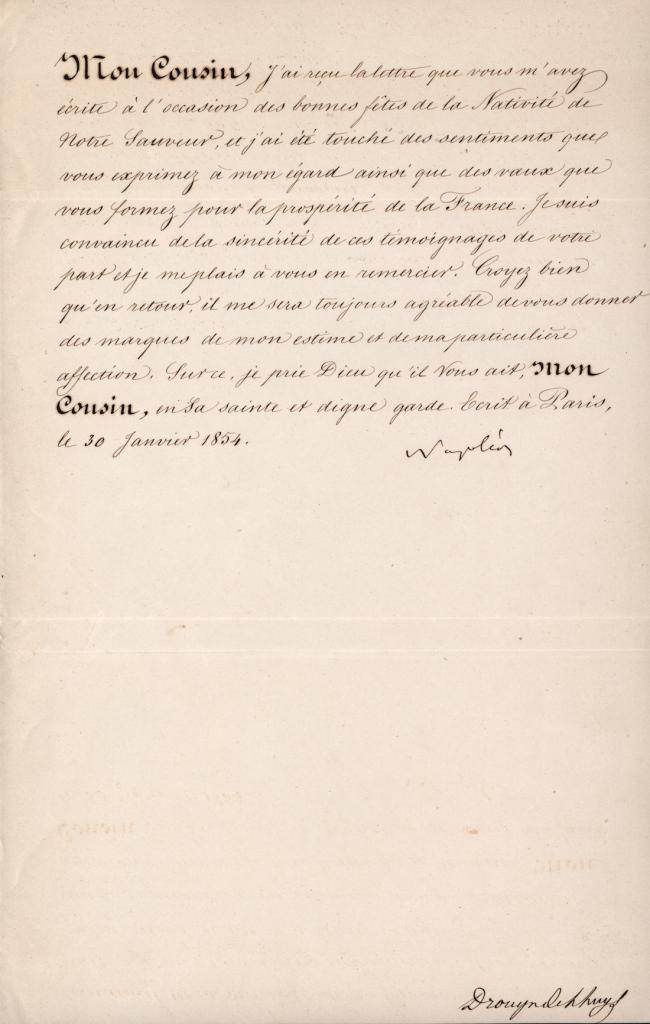 Mon Cousin, J'ai reçu la lettre que vous m'avez
écrite à l'occasion des bonnes fêtes de la Nativité de
Notre Sauveur, et j'ai été touché des sentiments que
vous exprimez à mon égard ainsi que des vœux que
vous formez pour la prospérité de la France. Je suis
convaincu de la sincérité de ces témoignages de votre
part et je me plais à vous en remercier. Croyez bien
qu'en retour, il me sera toujours agréable de vous donner
des marques de mon estime et de ma particulière
affection. Sur ce, je prie Dieu qu'il Vous ait, Mon
Cousin, en Sa sainte et digne garde. Ecrit à Paris,
le 30 Janvier 1854.
Napoléon
Drouyn de Lhuys